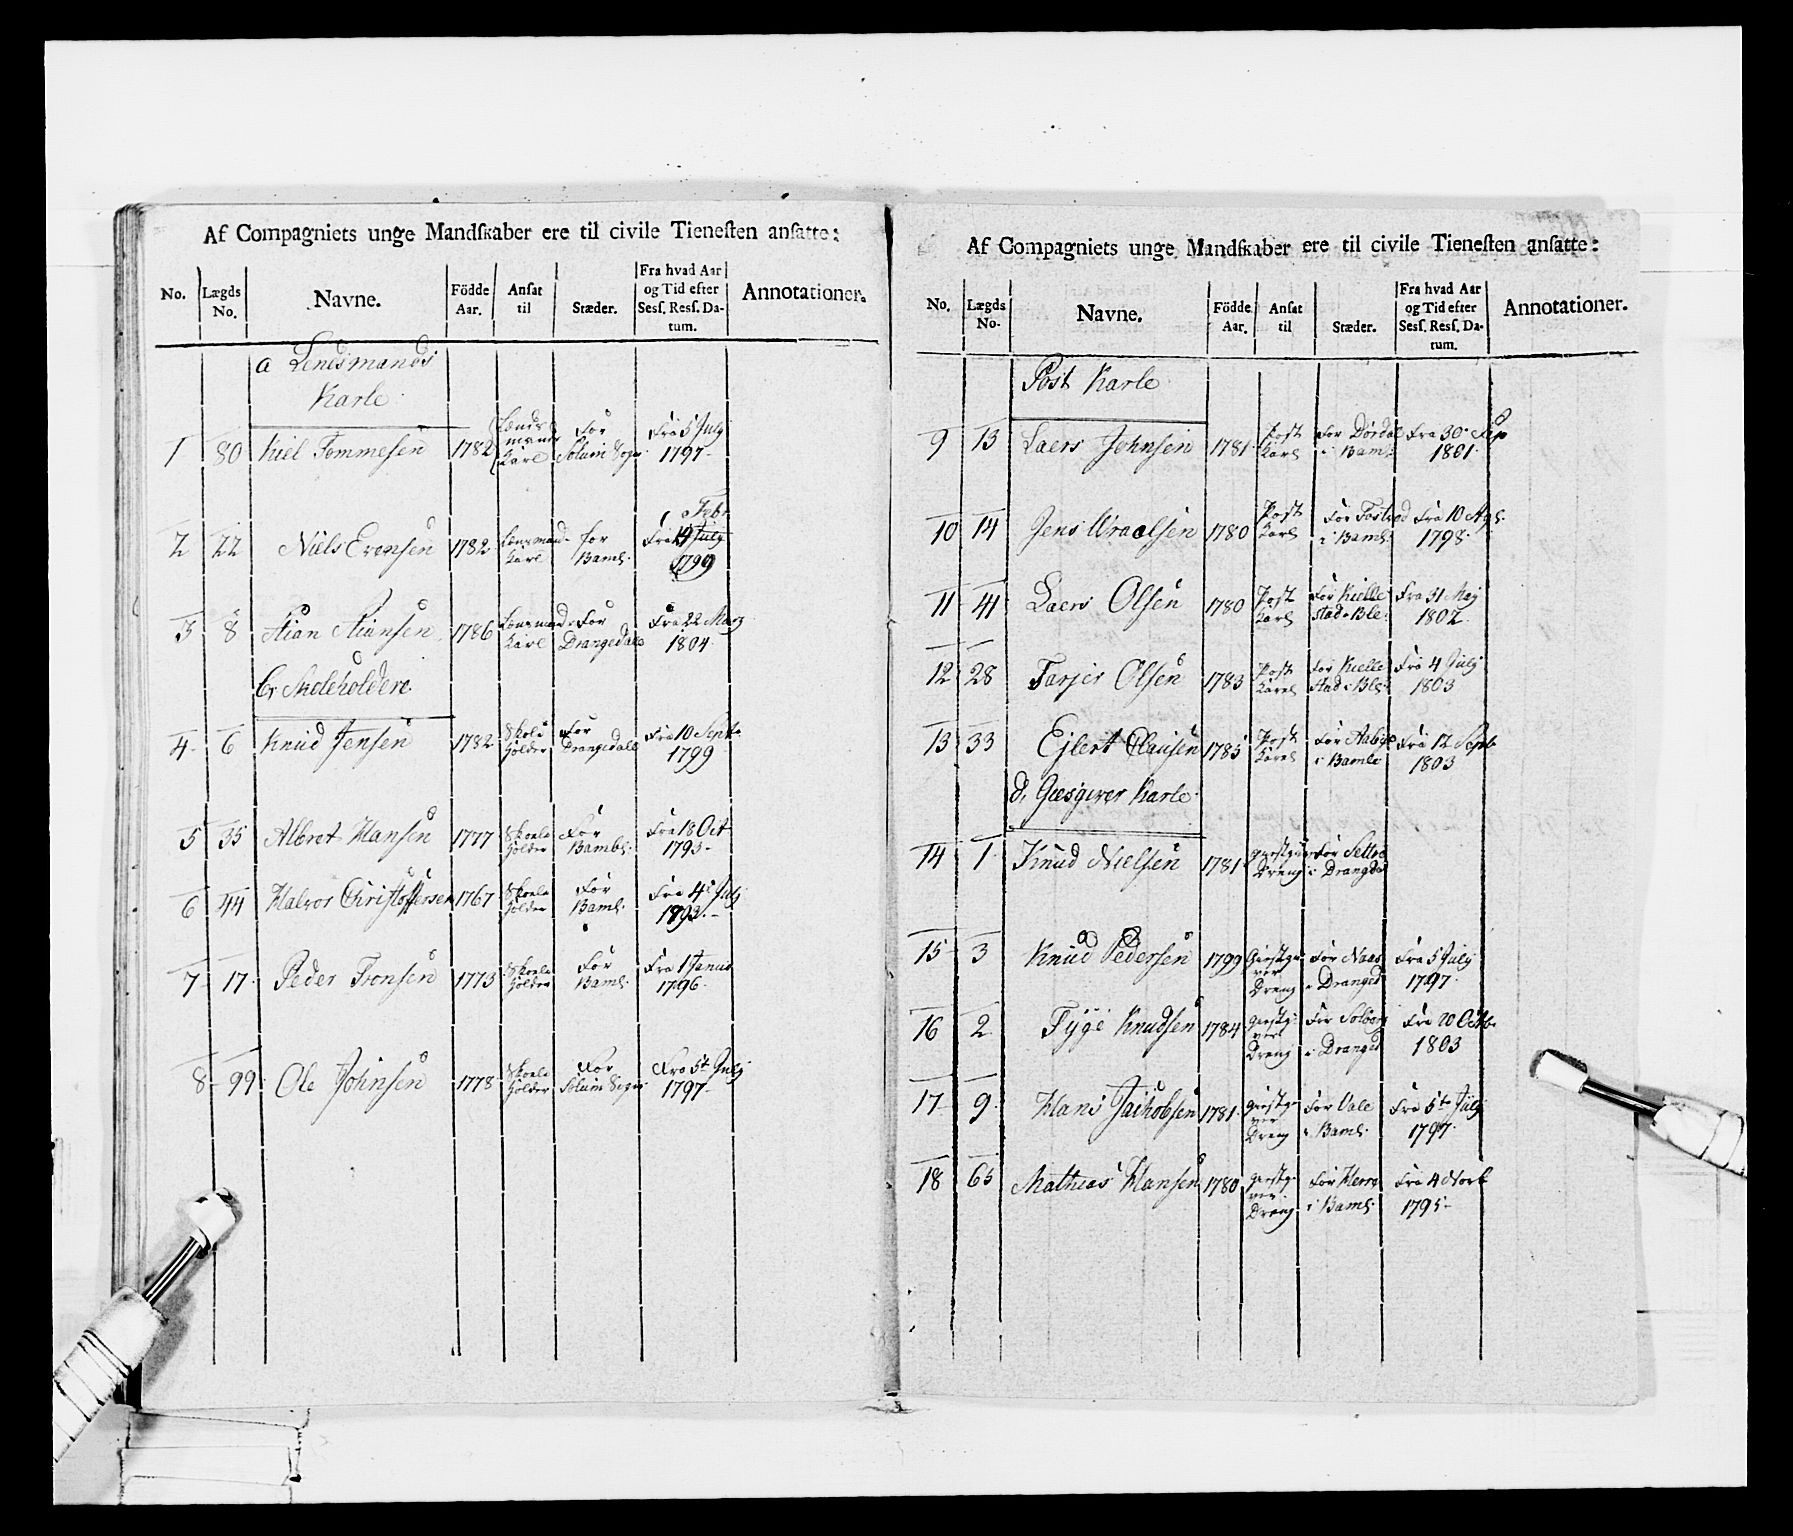 Af Compagniets unge Mandskaber ere til civile Tienesten ansatte:
No. Lægds No. Navne. Födde Aar. Ansat til Stæder. Fra hvad Aar og Tid efter Sess. Ress. Datum. Annotationer.
a Lensmands
Karle
1 80 Kiel Tommesen 1782 Lænds mands Karl For Solum Sogn Fra 5 July 1797
2 22 Niels Evensen 1782 Lænsmand Karl for Bamb. Fra 14 Febr July 1799
3 8 Stian Stiansen 1786 Lænsmand Karl For Drangedale Fra 22 Marz 1804
b, Skoleholdere
4 6 Knud Jensen 1782 Skole Holder For Drangedale Fra 10 Septr 1799
5 35 Albret Hansen 1777 Skoele Holder For Bambl. Fra 18 Oct 1793
6 44 Halvor Christoffersen 1767 Skoele Holder For Bamb. Fra 4 July 1793
7 17 Peder Tronsen 1773 Skoele Holder For Bamb. Fra 1 Janua 1796
8 99 Ole Johnsen 1778 Skoele Holder For Solum Sogn Fra 5te July 1797
Af Compagniets unge Mandskaber ere til civile Tienesten ansatte:
No. Lægds No. Navne. Födde Aar. Ansat til Stæder. Fra hvad Aar og Tid efter Sess. Ress. Datum. Annotationer.
Post Karle
9 13 Laers Johnsen 1781 Post Karl For Dördal i Bamb. Fra 30 Sep 1801
10 14 Jens Wraalsen 1780 Post Karl For i Bamb. Fra 10 1798
11 41 Laers Olsen 1780 Post Karl For Kielle stad i Ble. Fra 31 May 1802
12 28 Tarjer Olsen 1783 Post Karel For Kielle stad i Ble. Fra 4 July 1803
13 33 Ejlert Clausen 1785 Post Karel For i Bamle Fra 12 Septb 1803
d, Giesgiver Karle
14 1 Knud Nielsen 1781 Dreng For i Drangdal
15 3 Knud Pedersen 1799 Giestgi ver Dreng For Naas i Dranged Fra 5 July 1797
16 2 Tyge Knudsen 1784 giestgi ver Dreng For Solberg i Dranged Fra 20 Octb. 1803
17 9 Hans Jackobsen 1781 giestgi ver Dreng For Vale i Bamb. Fra 5te July 1797
18 65 Mathias Hansen 1780 giestgi ver Dreng For Herre i Bamb. Fra 4 1795